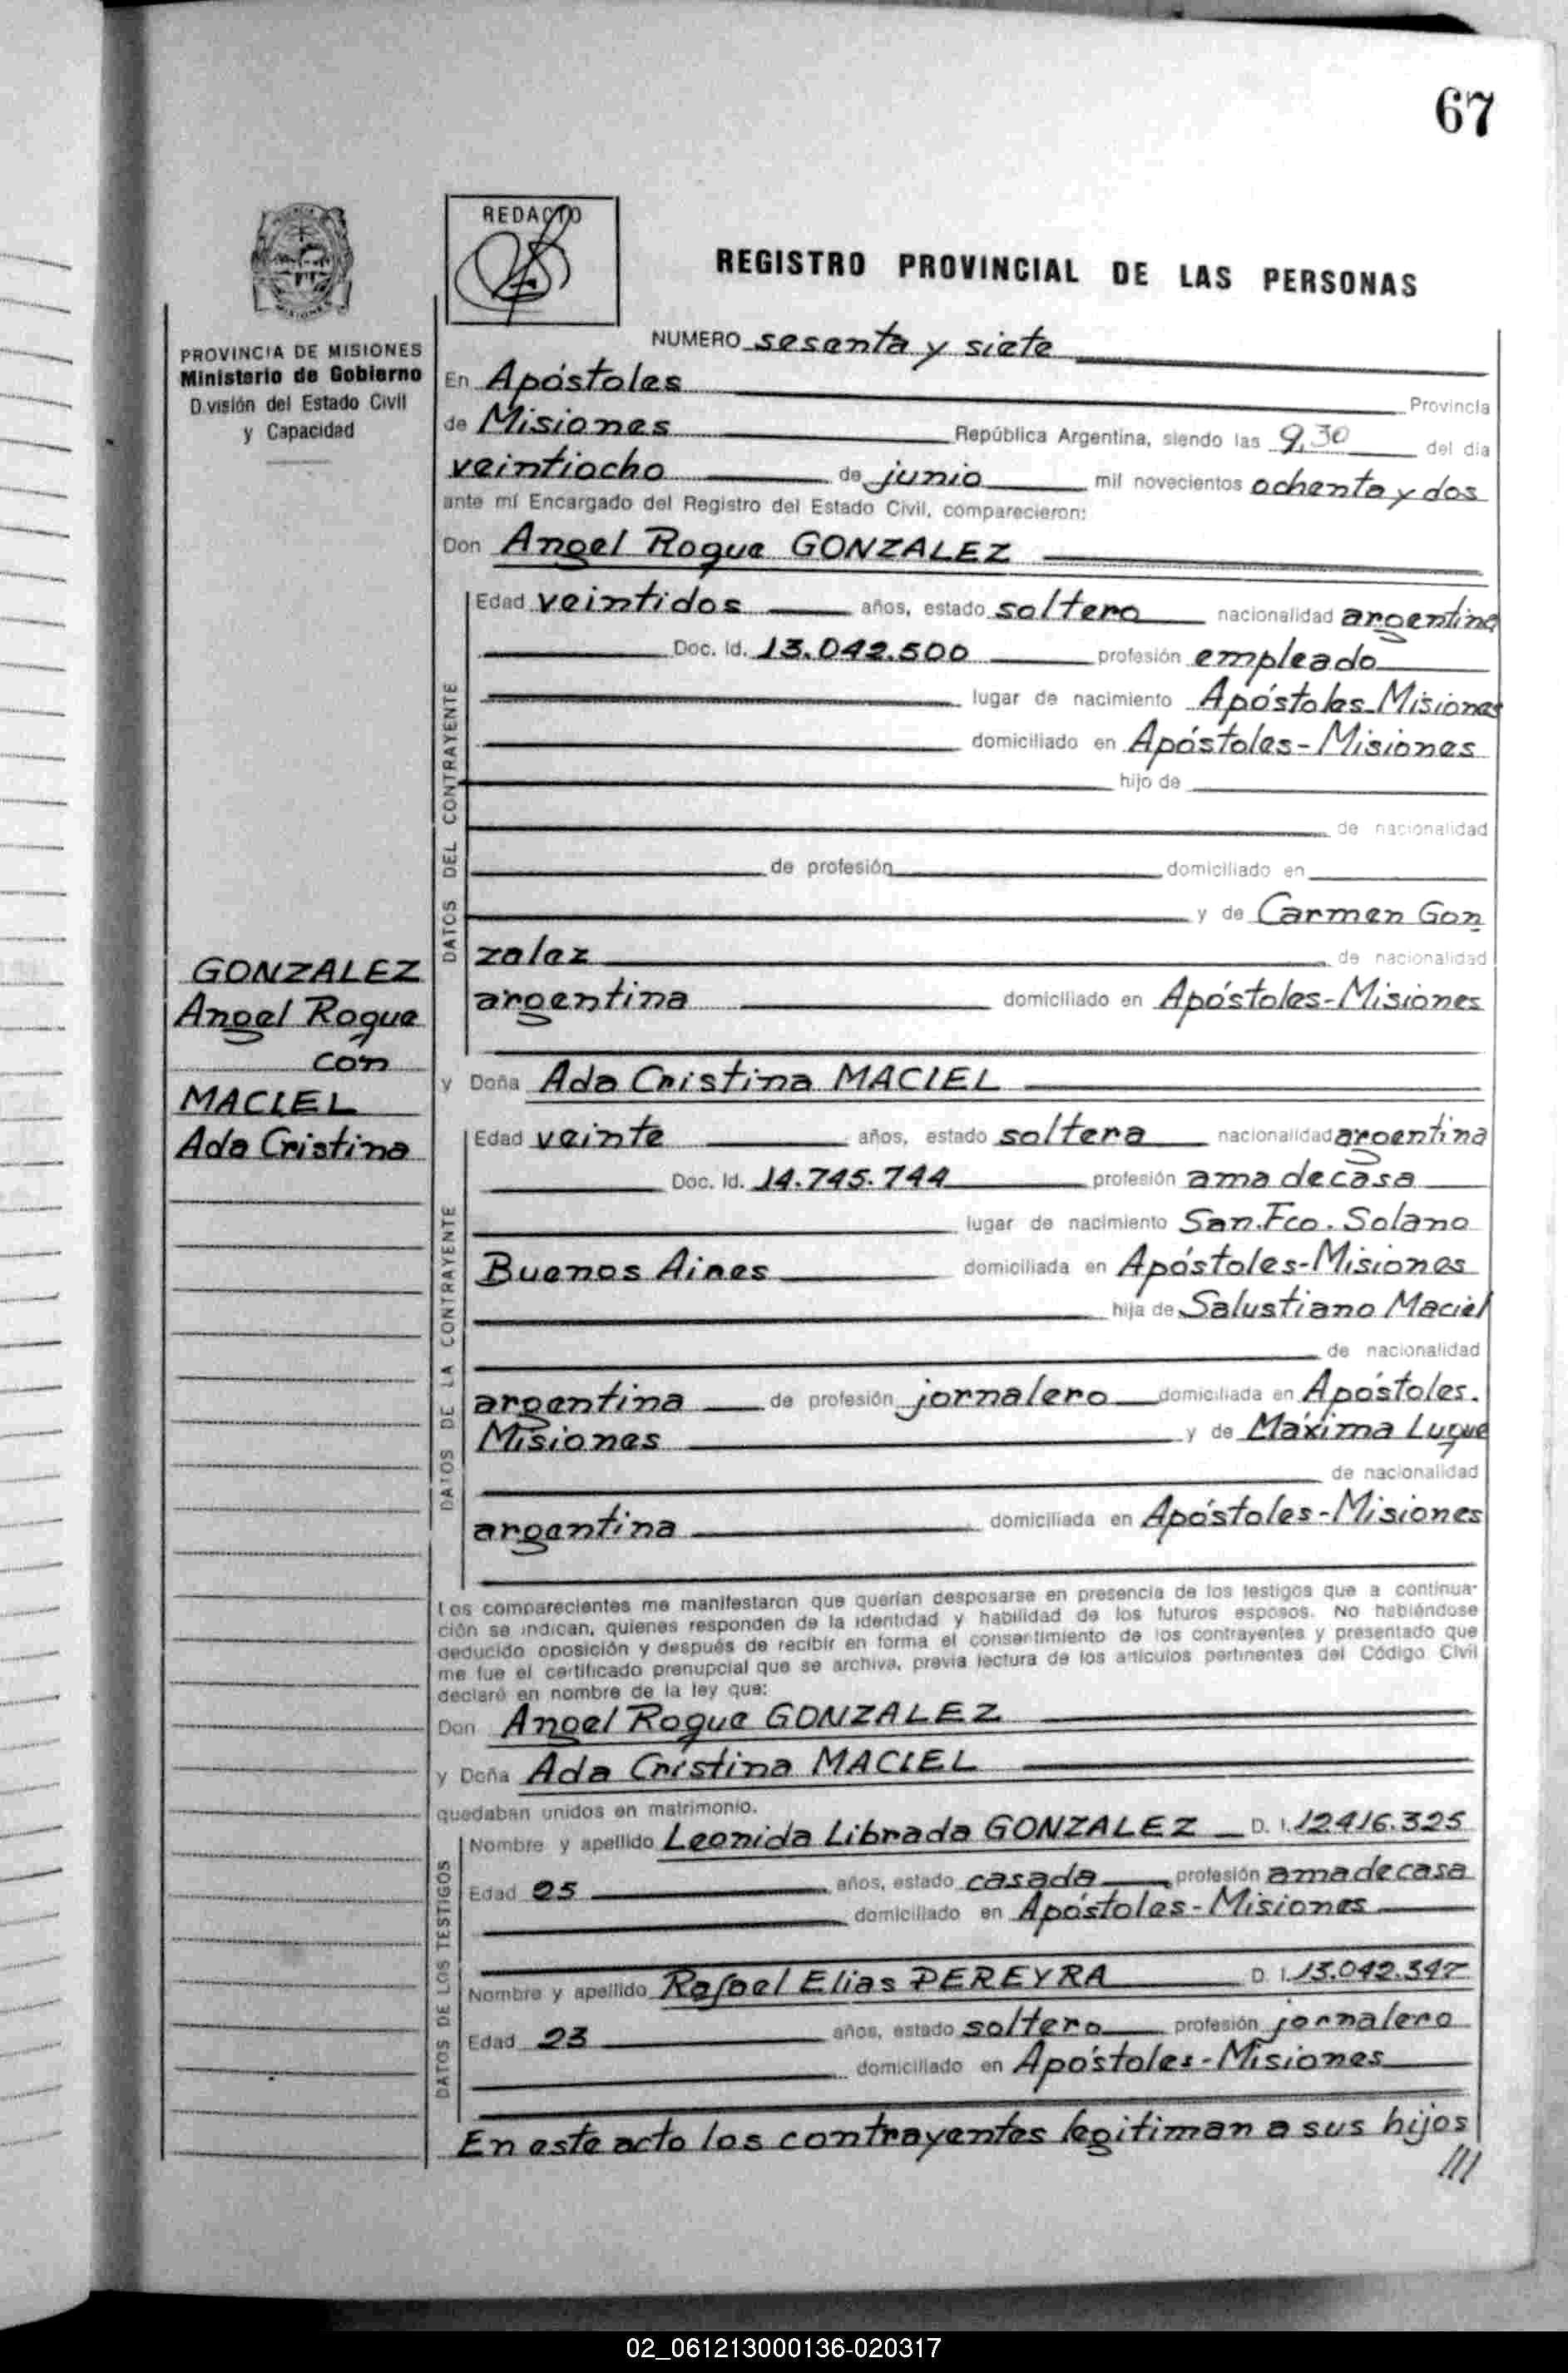 67
REDACTO
REGISTRO PROVINCIAL DE LAS PERSONAS
PROVINCIA DE MISIONES
Ministerio de Gobierno
División del Estado Civil
y Capacidad
NUMERO sesenta y siete
En Apóstoles Provincia
de Misiones República Argentina, siendo las 9,30 del día
veintiocho de junio mil novecientos ochenta y dos
ante mí Encargado del Registro del Estado Civil, comparecieron:
Don Angel Roque GONZALEZ
DATOS DEL CONTRAYENTE
Edad veintidos años, estado soltero nacionalidad argentina
Doc. Id. 13.042.500 profesión empleado
lugar de nacimiento Apóstoles-Misiones
domiciliado en Apóstoles-Misiones
hijo de
de nacionalidad
de profesión domiciliado en
y de Carmen Gon
zalez de nacionalidad
argentina domiciliado en Apóstoles-Misiones
GONZALEZ
Angel Roque
con
MACIEL
Ada Cristina
y Doña Ada Cristina MACIEL
DATOS DE LA CONTRAYENTE
Edad veinte años, estado soltera nacionalidad argentina
Doc. Id. 14.745.744 profesión ama de casa
lugar de nacimiento San.Fco. Solano
Buenos Aires domiciliada en Apóstoles-Misiones
hija de Salustiano Maciel
de nacionalidad
argentina de profesión jornalero domiciliada en Apóstoles.
Misiones y de Máxima Luque
de nacionalidad
argentina domiciliada en Apóstoles-Misiones
Los comparecientes me manifestaron que querían desposarse en presencia de los testigos que a continua-
ción se indican, quienes responden de la identidad y habilidad de los futuros esposos. No habiéndose
deducido oposición y después de recibir en forma el consentimiento de los contrayentes y presentado que
me fue el certificado prenupcial que se archiva, previa lectura de los artículos pertinentes del Código Civil
declaré en nombre de la ley que:
Don Angel Roque GONZALEZ
y Doña Ada Cristina MACIEL
quedaban unidos en matrimonio.
DATOS DE LOS TESTIGOS
Nombre y apellido Leonida Librada GONZALEZ D. I. 12416.325
Edad 25 años, estado casada profesión ama de casa
domiciliado en Apóstoles-Misiones
Nombre y apellido Rafael Elias PEREYRA D. I. 13.042.347
Edad 23 años, estado soltero profesión jornalero
domiciliado en Apóstoles-Misiones
En este acto los contrayentes legitiman a sus hijos
///
02_061213000136-020317